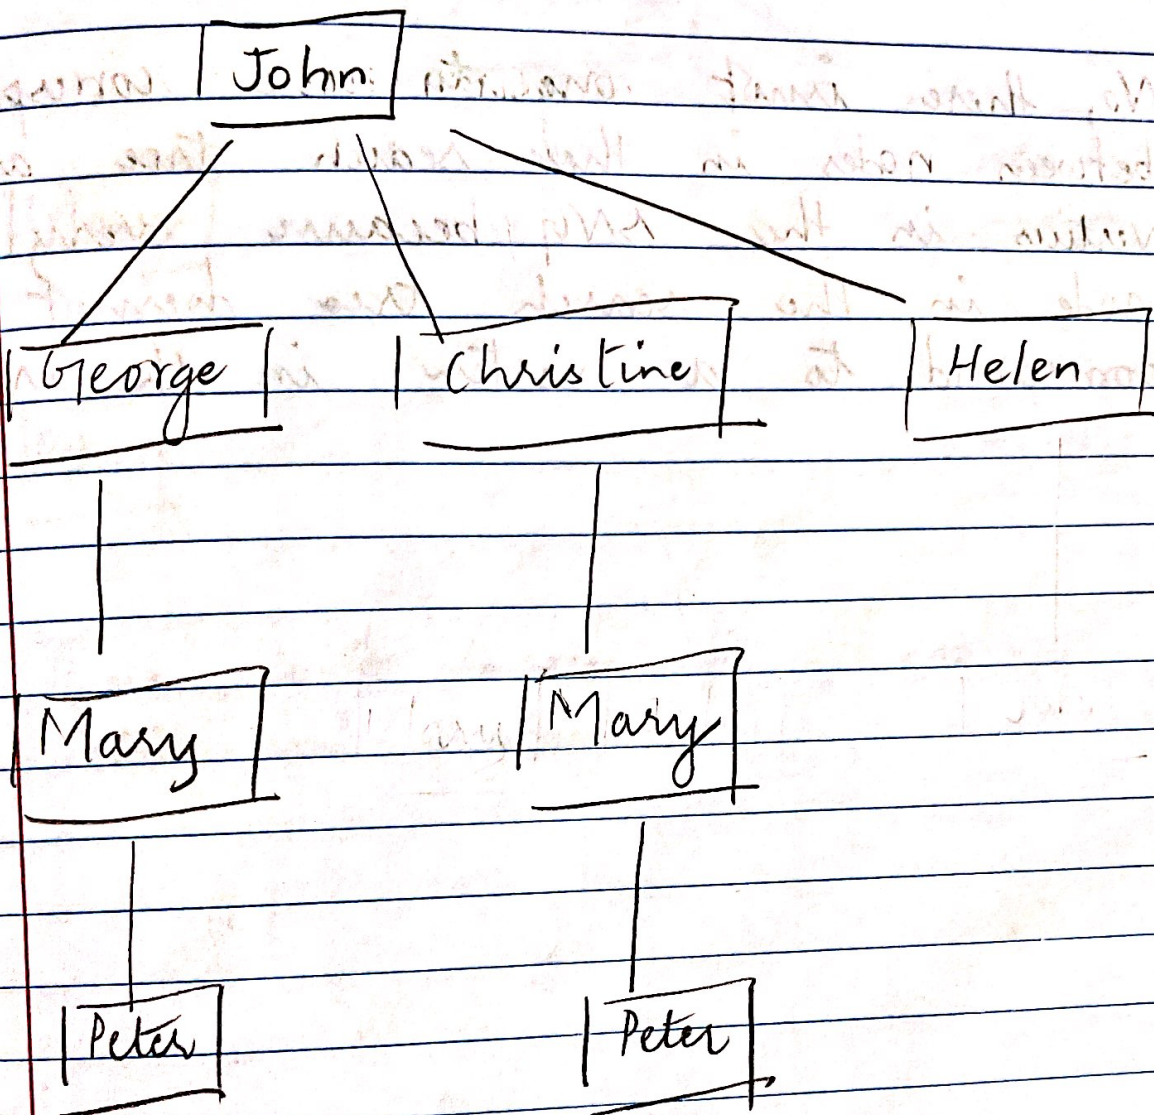 John
George Christine Helen
Mary Mary
Peter Peter